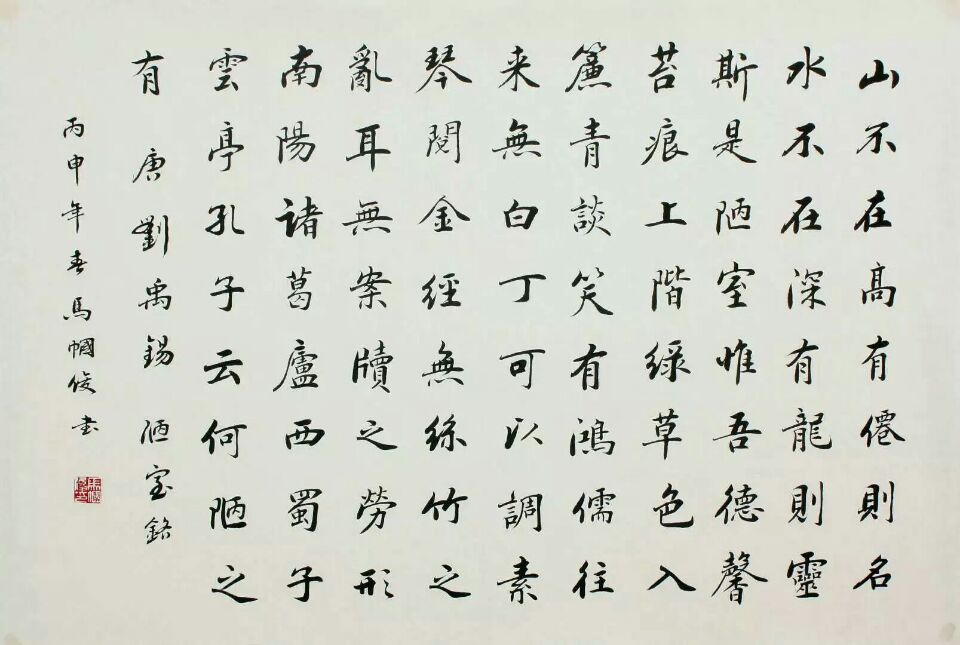 山不在高有僊則名
水不在深有龍則靈
斯是陋室惟吾德馨
苔痕上階綠草色入
簾青談笑有鴻儒往
来無白丁可以調素
琴閱金經無絲竹之
亂耳無案牘之勞形
南陽諸葛廬西蜀子
雲亭孔子云何陋之
有 唐劉禹錫 陋室銘
丙申年春馬幗俊书